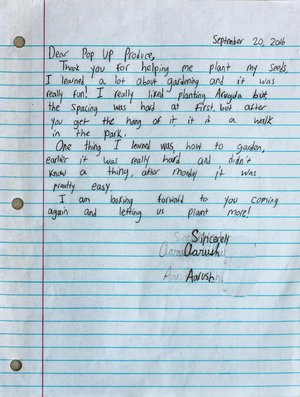 September 20, 2016
Dear Pop Up Produce,
Thank you for helping me plant my seeds,
I learned a lot about gardening and it was
really fun! I really liked planting Arugula but
the spacing was hard at first, but after
you get the hang of it it is a walk
in the park.
One thing I learned was how to garden,
earlier it was really hard and didn't
know a thing, after monday it was
pretty easy
I am looking forward to you coming
again and letting us plant more!
Sincerely
Aarushi
Aarushi